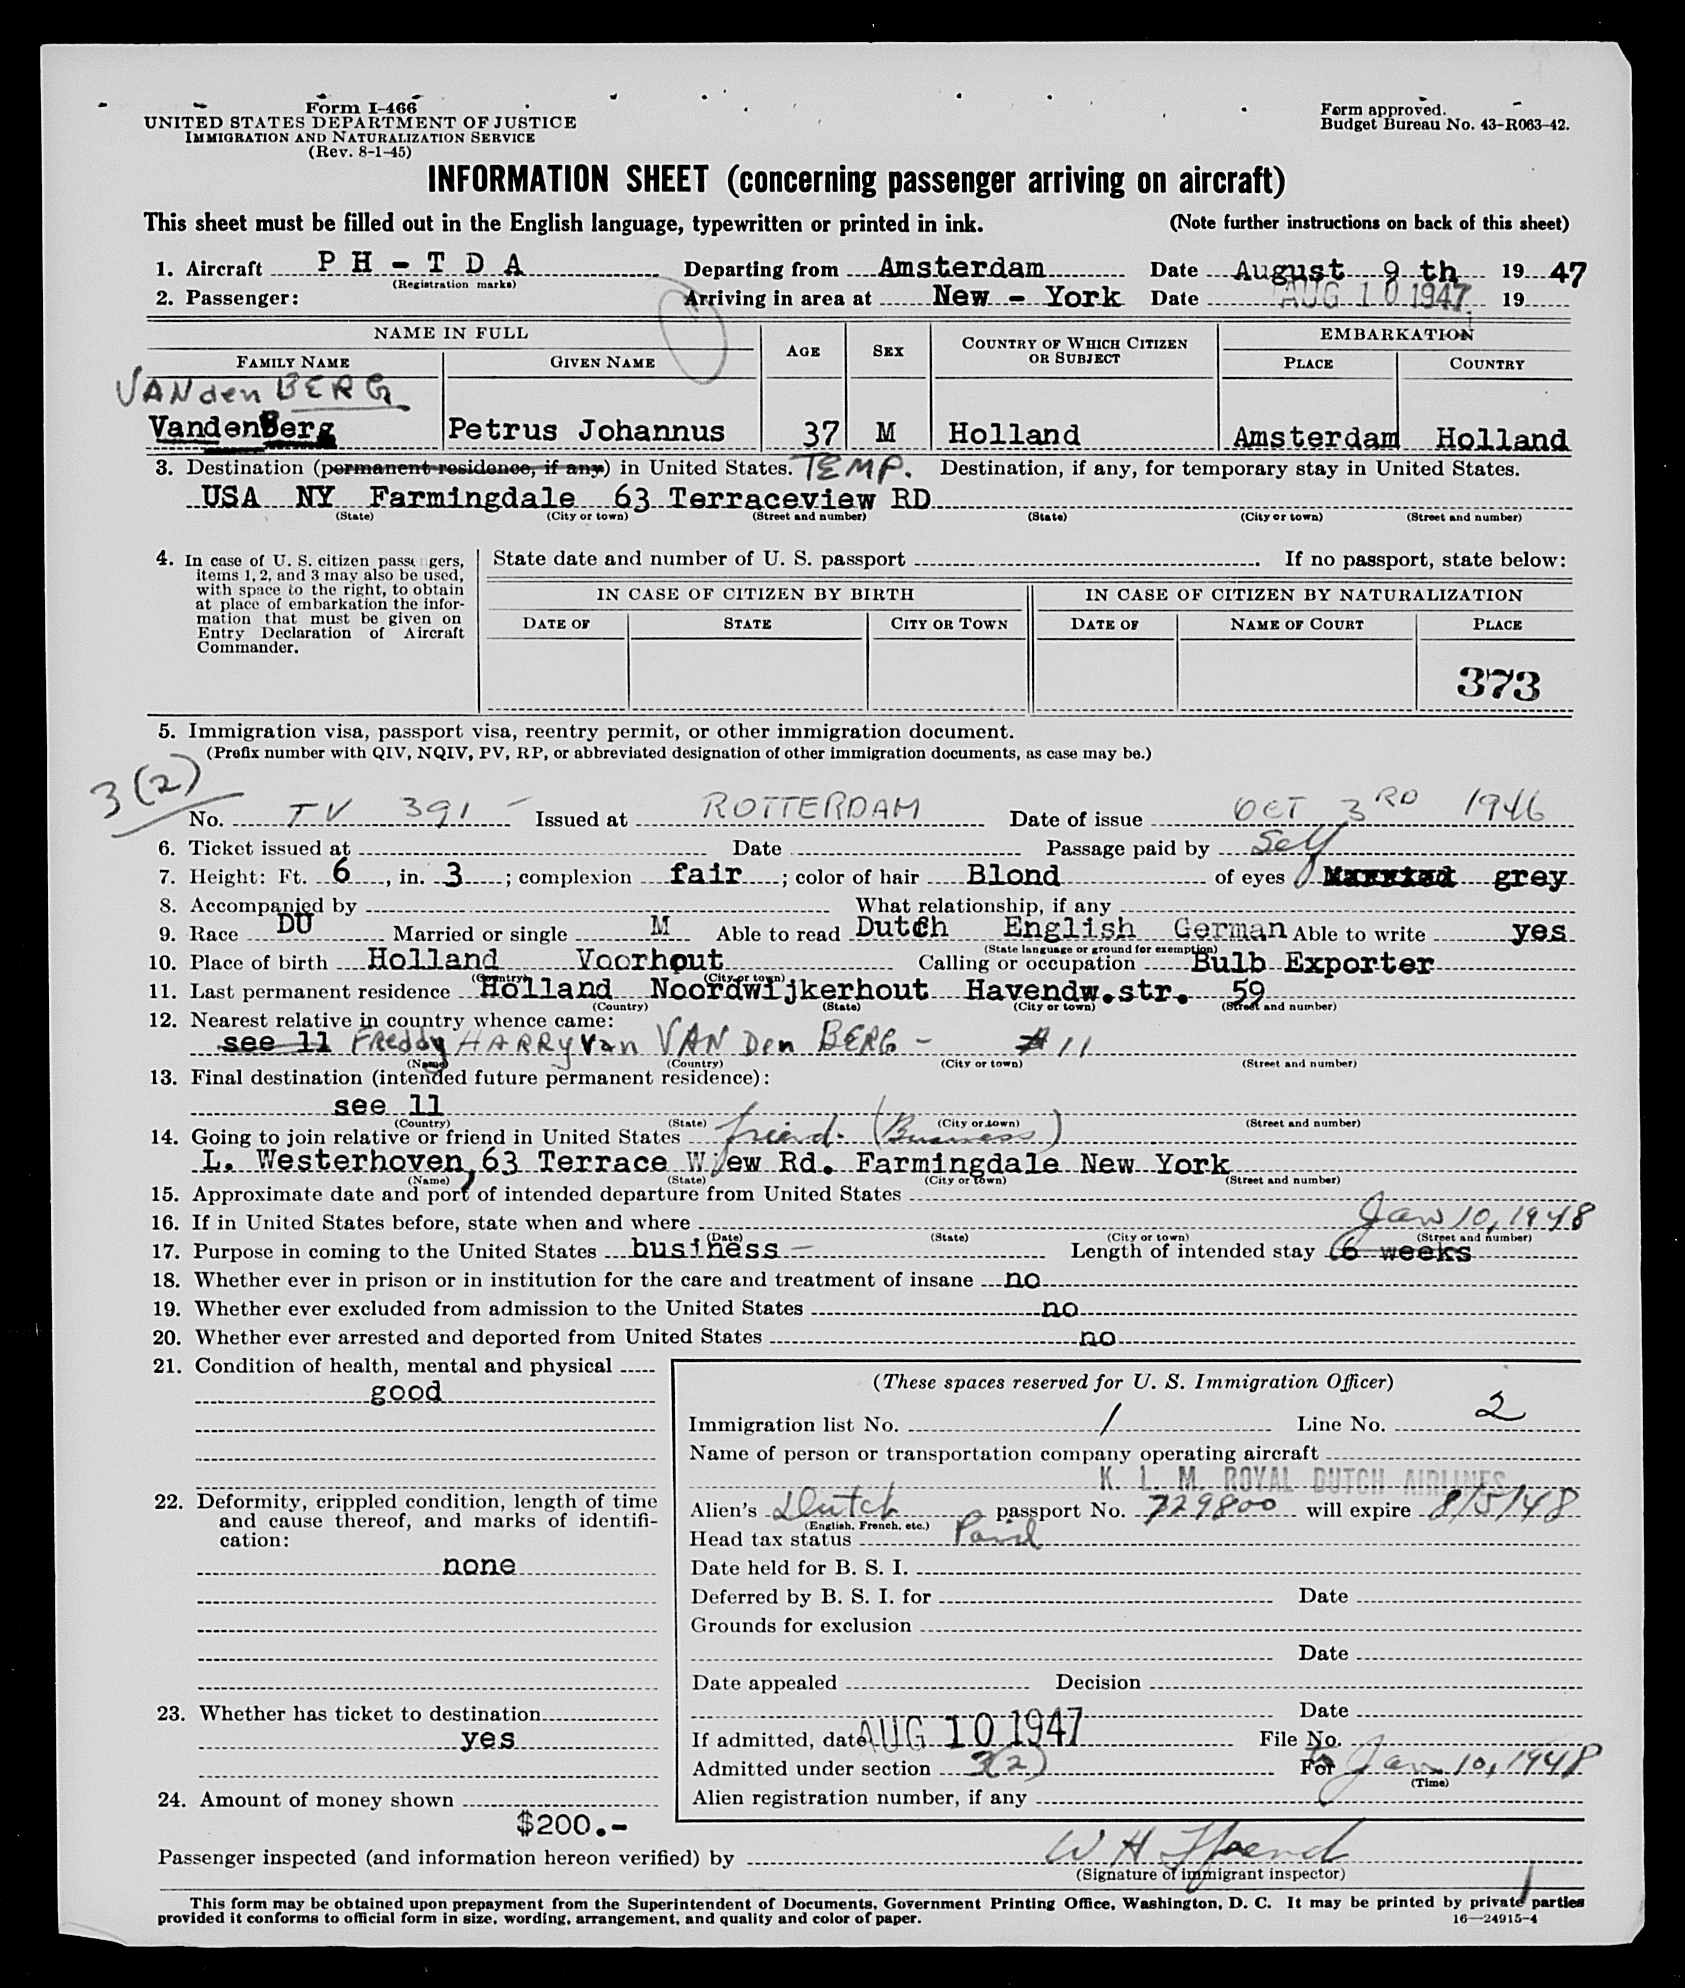 Form I-466
UNITED STATES DEPARTMENT OF JUSTICE
IMMIGRATION AND NATURALIZATION SERVICE
(Rev. 8-1-45)
Form approved.
Budget Bureau No. 43-R063-42.
INFORMATION SHEET (concerning passenger arriving on aircraft)
This sheet must be filled out in the English language, typewritten or printed in ink. (Note further instructions on back of this sheet)
1. Aircraft PH-TDA Departing from Amsterdam Date August 9 th 19 47
(Registration marks)
2. Passenger: Arriving in area at New - York Date AUG 10 1947 19
NAME IN FULL AGE SEX COUNTRY OF WHICH CITIZEN OR SUBJECT EMBARKATION
FAMILY NAME GIVEN NAME PLACE COUNTRY
VAN den BERG
VandenBerg Petrus Johannus 37 M Holland Amsterdam Holland
3. Destination (permanent residence, if any) in United States. TEMP. Destination, if any, for temporary stay in United States.
USA NY Farmingdale 63 Terraceview RD
(State) (City or town) (Street and number) (State) (City or town) (Street and number)
4. In case of U. S. citizen passengers,
items 1, 2, and 3 may also be used,
with space to the right, to obtain
at place of embarkation the infor-
mation that must be given on
Entry Declaration of Aircraft
Commander.
State date and number of U. S. passport If no passport, state below:
IN CASE OF CITIZEN BY BIRTH IN CASE OF CITIZEN BY NATURALIZATION
DATE OF STATE CITY OR TOWN DATE OF NAME OF COURT PLACE
373
5. Immigration visa, passport visa, reentry permit, or other immigration document.
(Prefix number with QIV, NQIV, PV, RP, or abbreviated designation of other immigration documents, as case may be.)
3(2)
No. TV 391 - Issued at ROTTERDAM Date of issue OCT 3RD 1946
6. Ticket issued at Date Passage paid by Self
7. Height: Ft. 6, in. 3; complexion fair; color of hair Blond of eyes Married grey
8. Accompanied by What relationship, if any
9. Race DU Married or single M Able to read Dutch English German Able to write yes
(State language or ground for exemption)
10. Place of birth Holland Voorhout Calling or occupation Bulb Exporter
(Country) (City or town)
11. Last permanent residence Holland Noordwijkerhout Havendw.str. 59
(Country) (State) (City or town) (Street and number)
12. Nearest relative in country whence came:
see 11 FReddy HARRy Van VAN Den BERG - # 11
(Name) (Country) (City or town) (Street and number)
13. Final destination (intended future permanent residence):
see 11
(Country) (State) (City or town) (Street and number)
14. Going to join relative or friend in United States friend. (Business)
L. Westerhoven, 63 Terrace View Rd. Farmingdale New York
(Name) (State) (City or town) (Street and number)
15. Approximate date and port of intended departure from United States
16. If in United States before, state when and where Jan 10, 1948
(Date) (State) (City or town) (Street and number)
17. Purpose in coming to the United States business - Length of intended stay 6 weeks
18. Whether ever in prison or in institution for the care and treatment of insane no
19. Whether ever excluded from admission to the United States no
20. Whether ever arrested and deported from United States no
21. Condition of health, mental and physical
good
22. Deformity, crippled condition, length of time
and cause thereof, and marks of identifi-
cation:
none
23. Whether has ticket to destination
yes
24. Amount of money shown
$200.-
(These spaces reserved for U. S. Immigration Officer)
Immigration list No. 1 Line No. 2
Name of person or transportation company operating aircraft
K. L. M. ROYAL DUTCH AIRLINES
Alien's Dutch passport No. 729800 will expire 8/5/48
(English, French, etc.)
Head tax status Paid
Date held for B. S. I.
Deferred by B. S. I. for Date
Grounds for exclusion
Date
Date appealed Decision
Date
If admitted, date AUG 10 1947 File No.
Admitted under section 3(2) For to Jan 10, 1948
(Time)
Alien registration number, if any
Passenger inspected (and information hereon verified) by W H
(Signature of immigrant inspector)
This form may be obtained upon prepayment from the Superintendent of Documents, Government Printing Office, Washington, D. C. It may be printed by private parties
provided it conforms to official form in size, wording, arrangement, and quality and color of paper. 16—24915-4